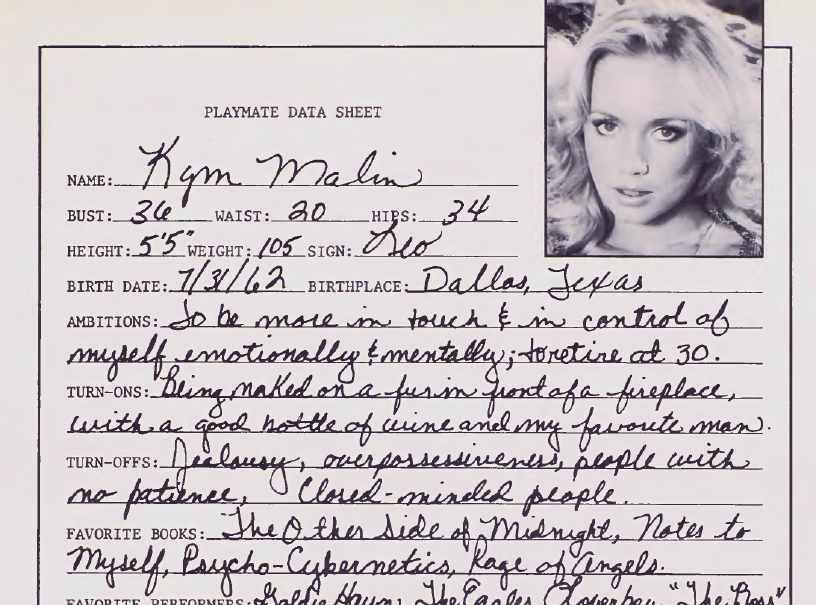 PLAYMATE DATA SHEET
NAME: Kym Malin
BUST: 36 WAIST: 20 HIPS: 34
HEIGHT: 5'5" WEIGHT: 105 SIGN: Leo
BIRTH DATE: 7/31/62 BIRTHPLACE: Dallas, Texas
AMBITIONS: To be more in touch & in control of
myself emotionally & mentally; to retire at 30.
TURN-ONS: Being naked on a fur in front of a fireplace,
with a good bottle of wine and my favorite man.
TURN-OFFS: Jealousy, overpossessiveness, people with
no patience, Closed-minded people.
FAVORITE BOOKS: The Other Side of Midnight, Notes to
Myself, Psycho-Cybernetics, Rage of Angels.
FAVORITE PERFORMERS: Goldie Hawn, The Eagles, Loverboy, "The Boss"